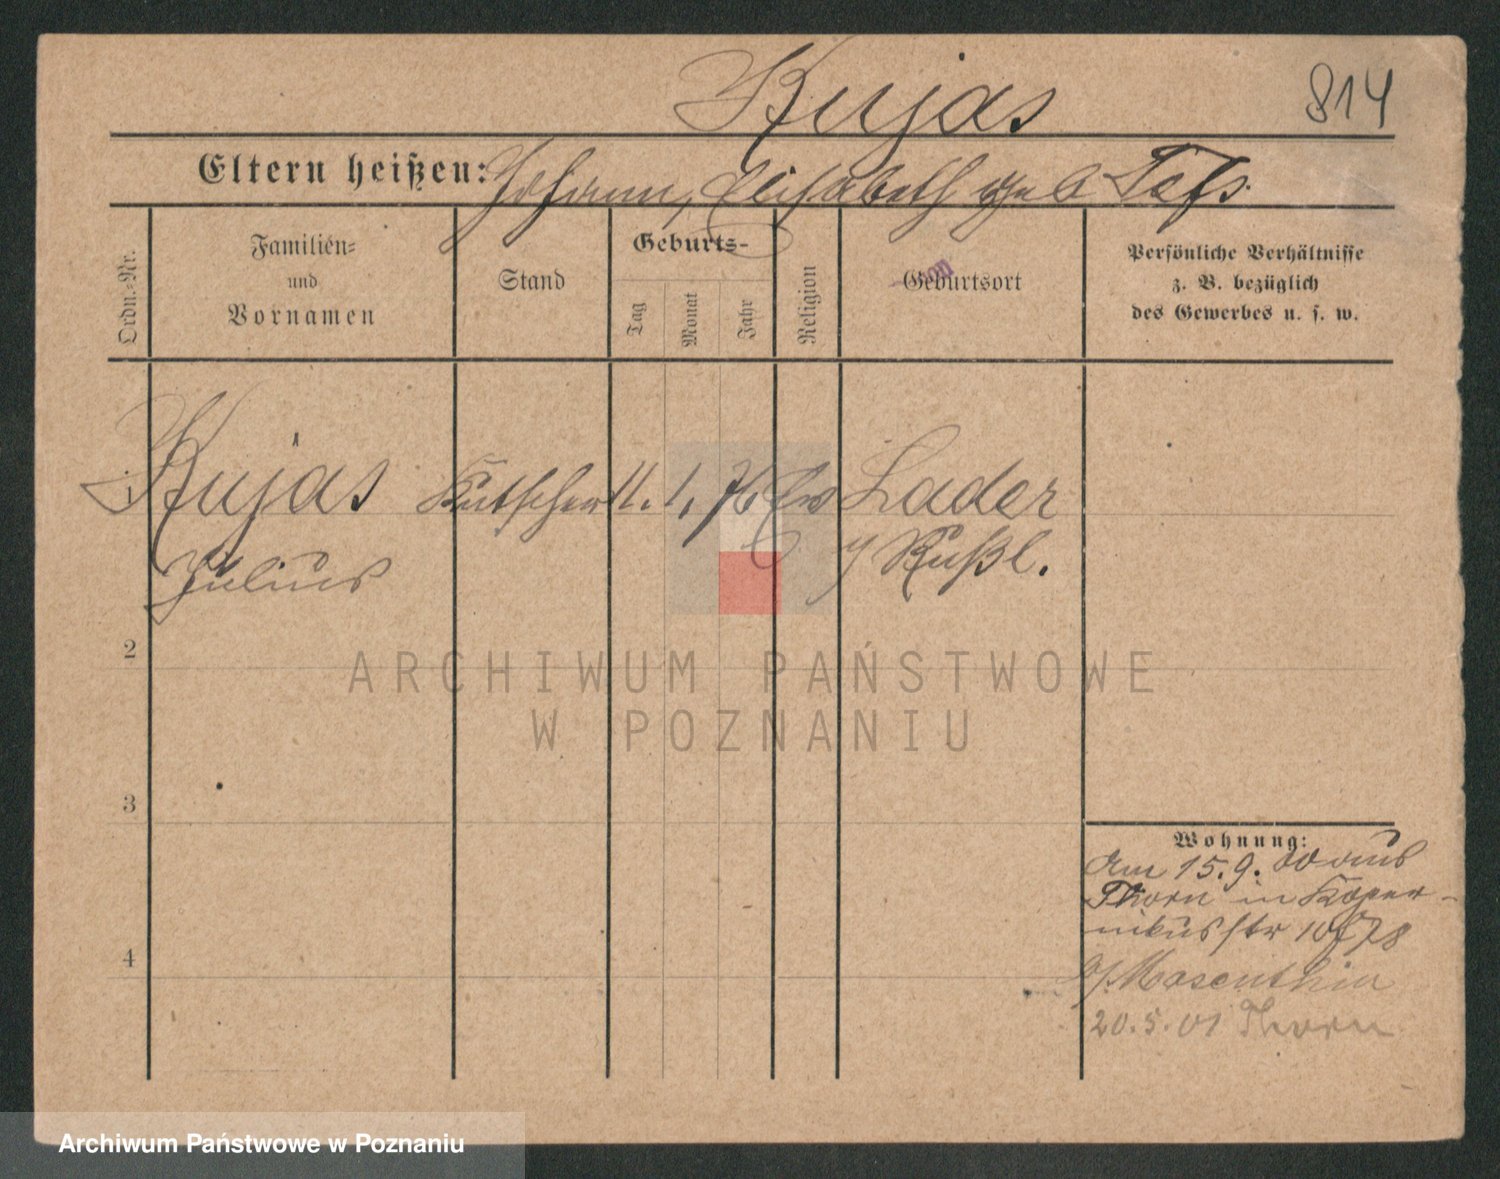 Kujas
814
Eltern heißen: Johann, Elisabeth geb
Ordn.-Nr.
Familien-
und
Vornamen
Stand
Geburts-
Tag
Monat
Jahr
Religion
Geburtsort
Persönliche Verhältnisse
z. B. bezüglich
des Gewerbes u. s. w.
1 Kujas Kutscher 11. 1. 76 Ev Lader
Julius
i/ Rußl.
2
ARCHIWUM PAŃSTWOWE
W POZNANIU
3
Wohnung:
Am 15.9. 00 aus
Thorn in Koper-
nikusstr
4
b/ Masenthin
20.5.01 Thorn
Archiwum Państwowe w Poznaniu